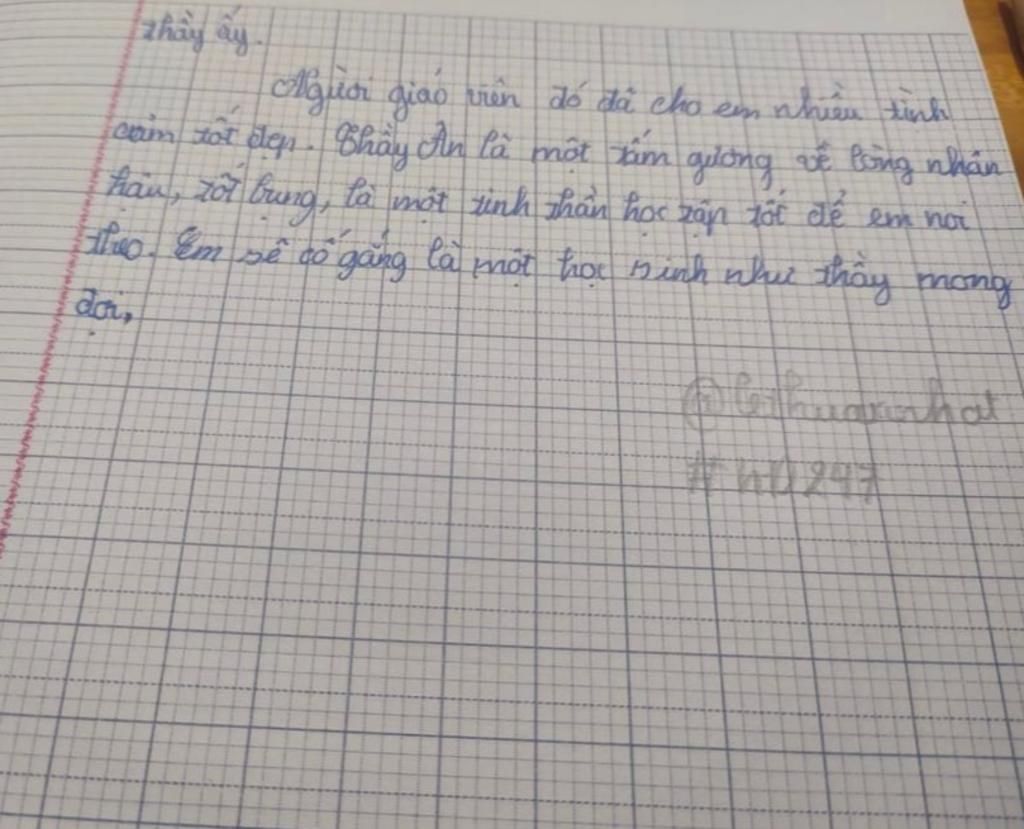 thầy ấy.
Người giáo viên đó đã cho em nhiều tình
cảm tốt đẹp. Thầy Ân là một tấm gương về lòng nhân
hậu, tốt bụng, là một tinh thần học tập tốt để em noi
theo. Em sẽ cố gắng là một học sinh như thầy mong
đợi,